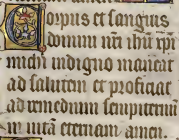 Corpus et sanguis
domini nri ihu xpi
michi indigno maneat
ad salutem et proficiat
ad remedium sempiternū
in uitā eternam amen.